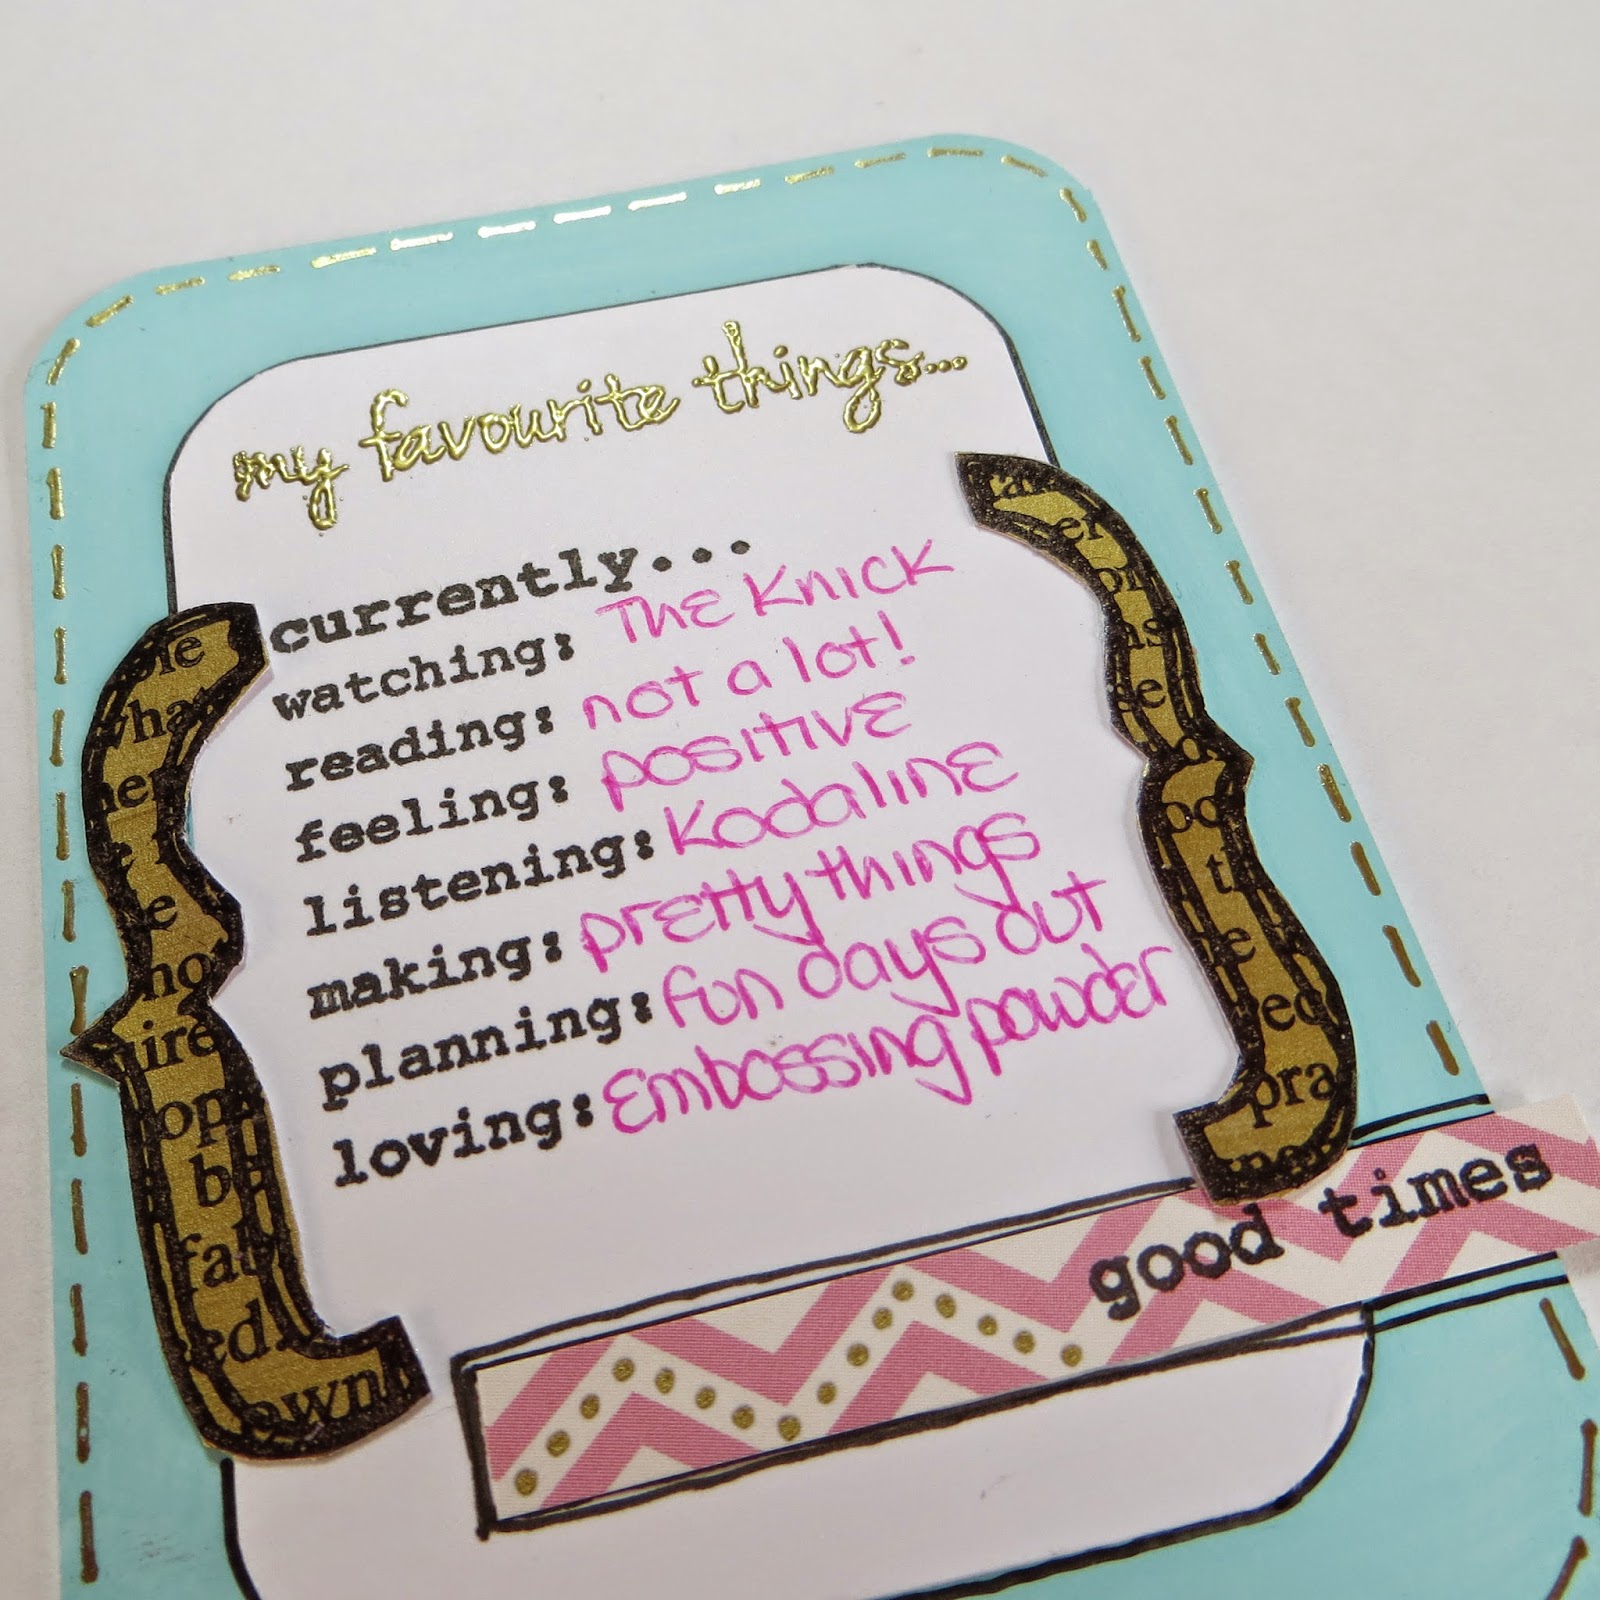 my favourite things...
currently...
watching: The Knick
reading: not a lot!
feeling: positive
listening: Kodaline
making: pretty things
planning: fun days out
loving: Embossing powder
good times